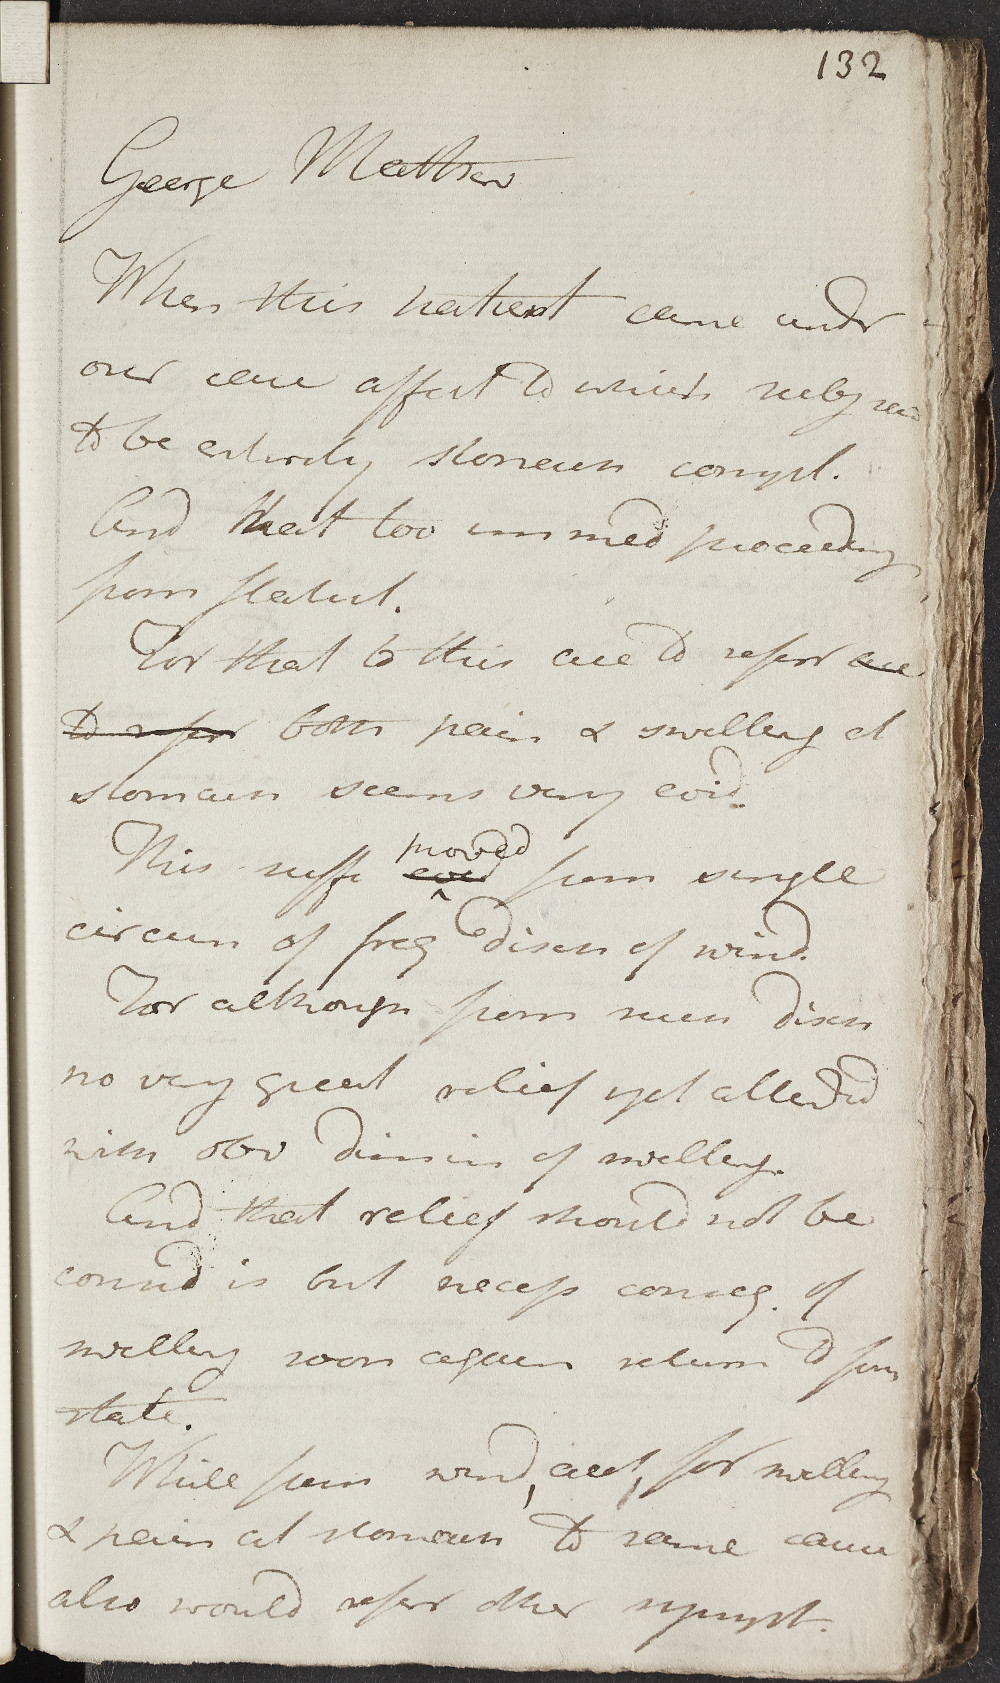 132
George Mathew
When this patient came under
our care affect to which subj
to be entirely stomach compl.
And that too immed proceeding
from flatul.
For that to this are to refer are
to refer both pain & swelling at
stomach seems very evid.
This suffi moved evid from single
circum of freq disch of wind.
For although from such disch
no very great relief yet attended
with obv dimin of swelling.
And that relief should not be
contind is but necess conseq. of
swelling soon again return to form
state.
While from wind, acct, for swelling
& pain at stomach to same cause
also would refer other sympt.